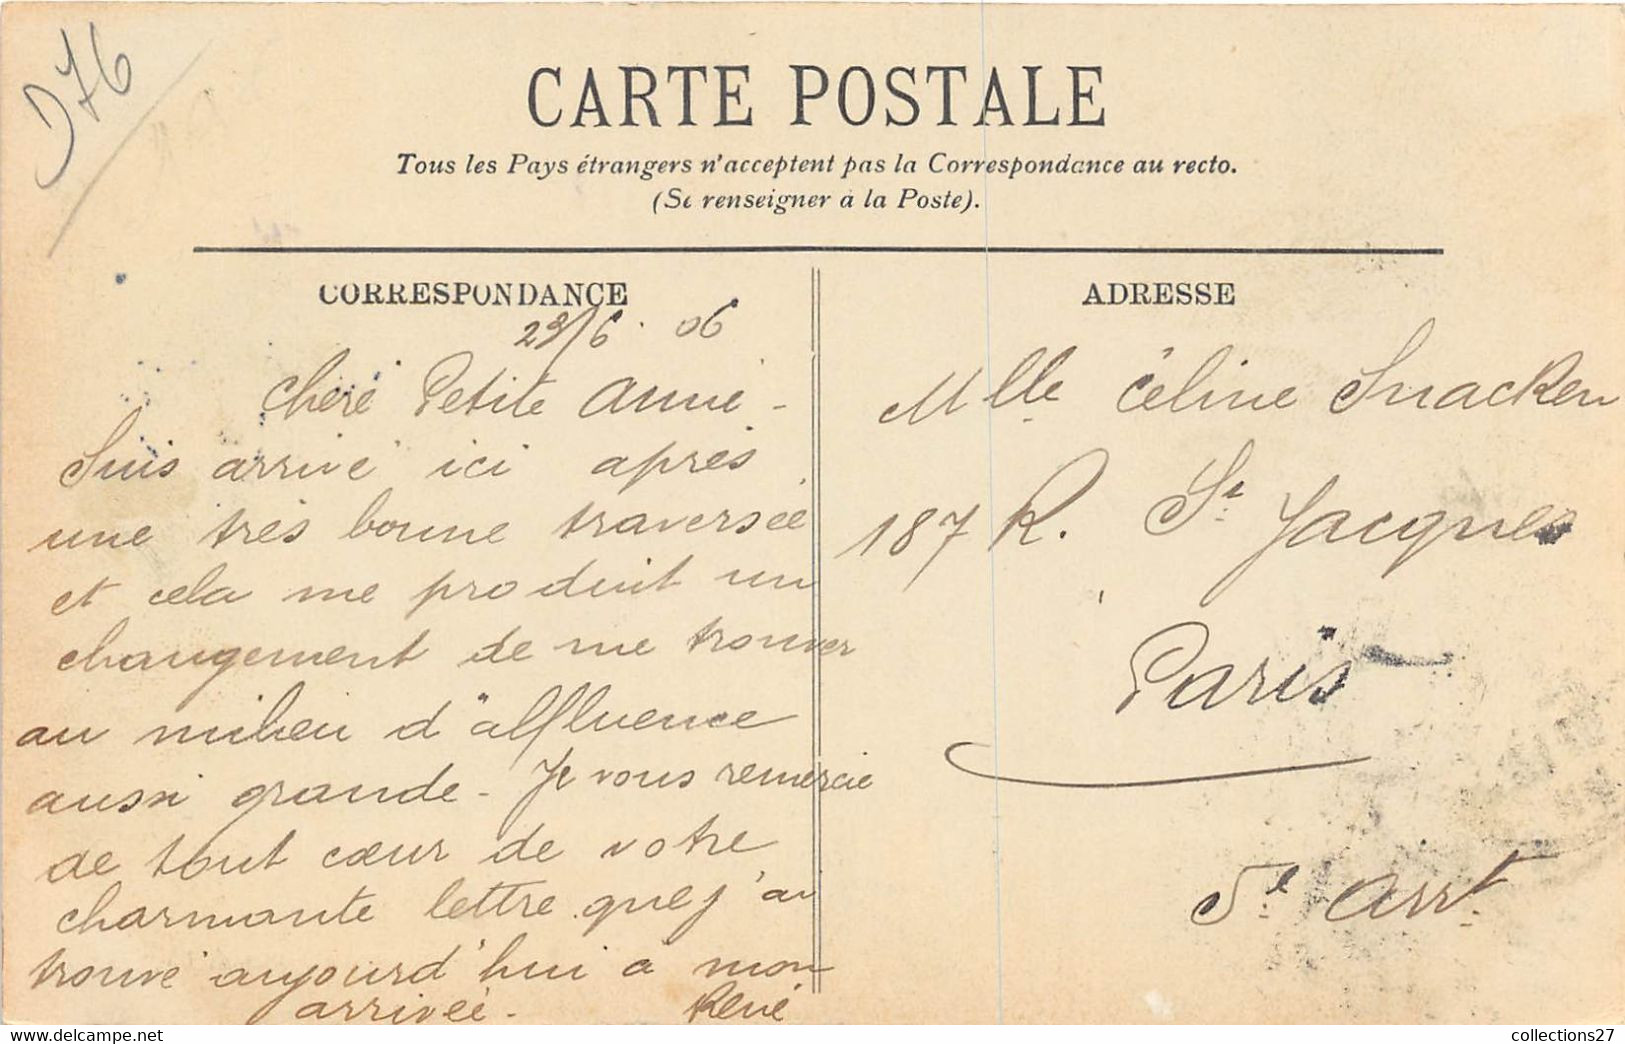 D76
CARTE POSTALE
Tous les Pays étrangers n'acceptent pas la Correspondance au recto.
(Se renseigner à la Poste).
CORRESPONDANCE
29/6 · 06
Chère Petite Amie -
Suis arrivé ici après
une très bonne traversée
et cela me produit un
changement de me trouver
au milieu d'affluence
aussi grande - Je vous remercie
de tout cœur de votre
charmante lettre que j'ai
trouvé aujourd'hui à mon
arrivée -
René
ADRESSE
Mlle Céline Snacken
187 R. St Jacques
Paris
5e Arrt
collections27